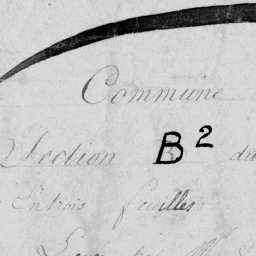 Commune
Section B² du
En trois feuilles